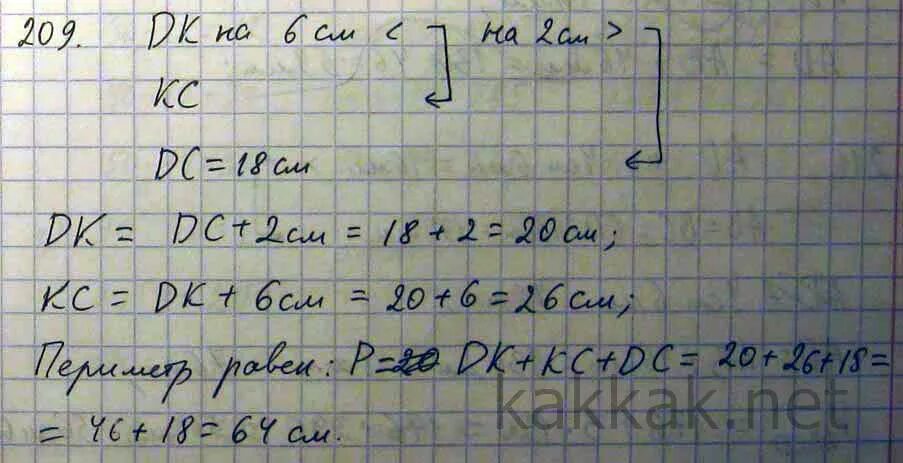 209. DK на 6 см < на 2 см >
KC
DC = 18 см
DK = DC + 2 см = 18 + 2 = 20 см;
KC = DK + 6 см = 20 + 6 = 26 см;
Периметр равен: P = DK + KC + DC = 20 + 26 + 18 =
= 46 + 18 = 64 см.
kakkak.net